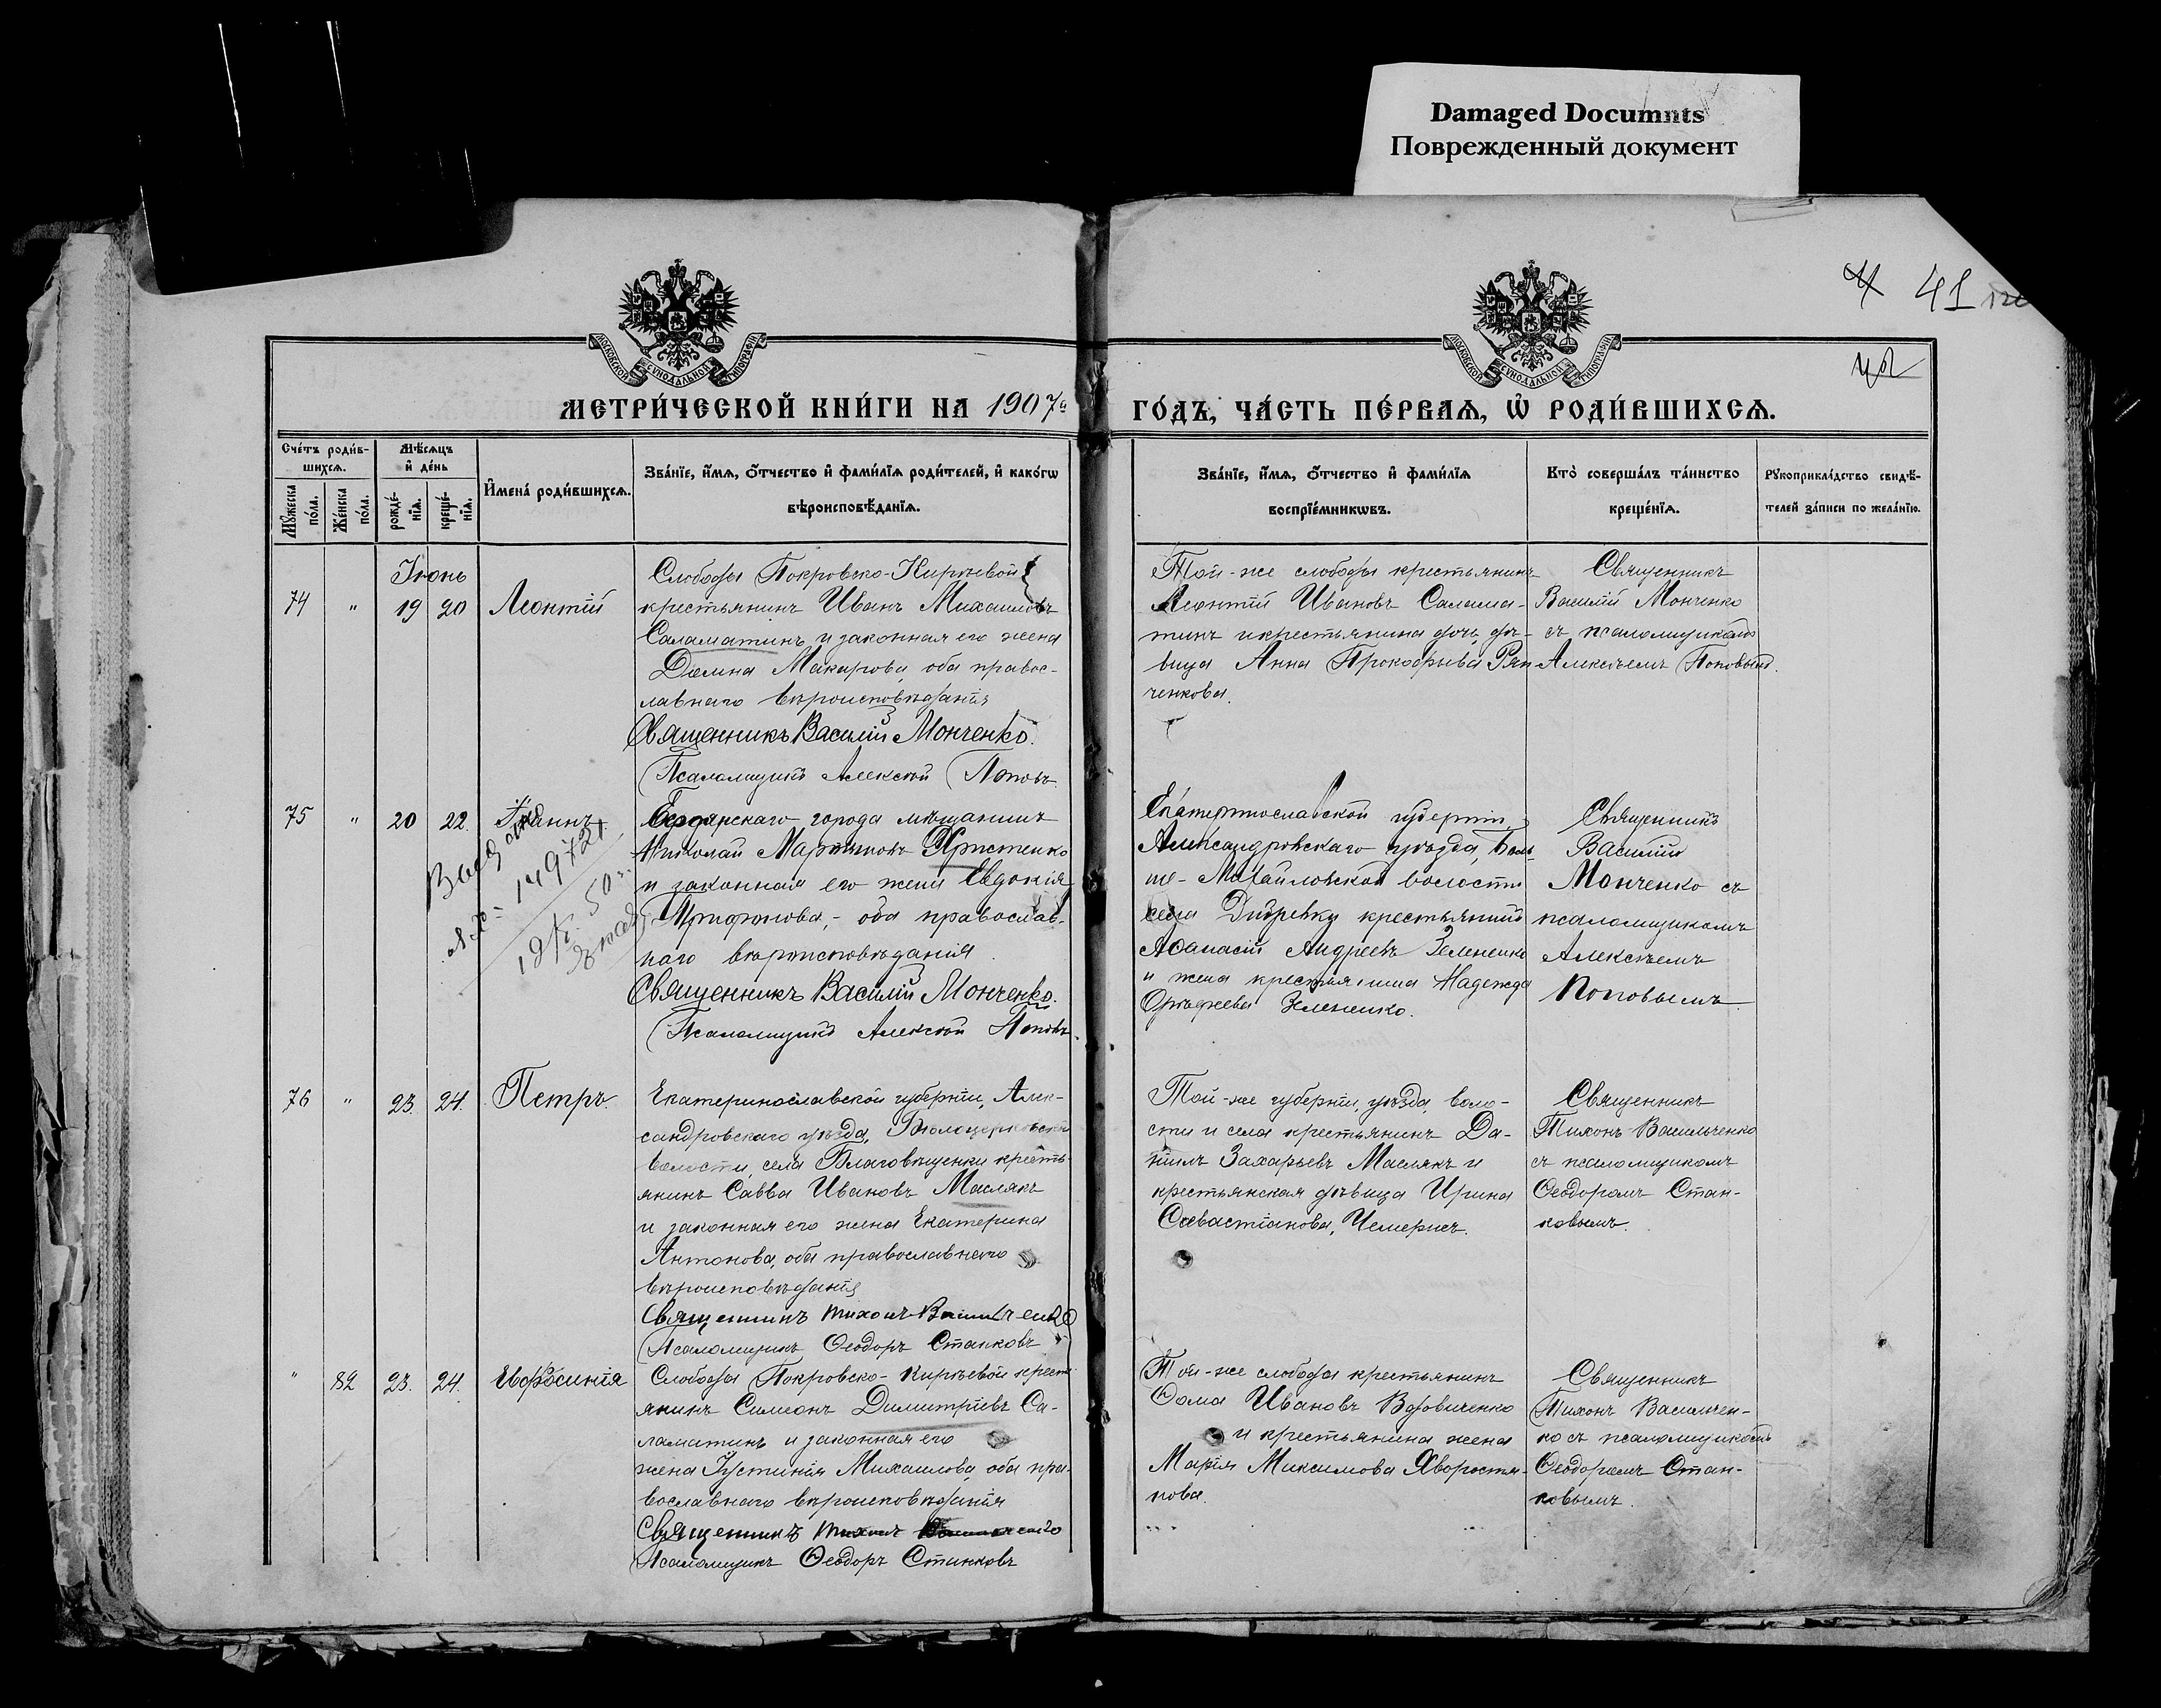 Damaged Documnts
Поврежденный документ
41
МОСКОВСКОЙ СѴНОДАЛЬНОЙ ТИПОГРАФІИ
МОСКОВСКОЙ СѴНОДАЛЬНОЙ ТИПОГРАФІИ
МЕТРИ́ЧЕСКОЙ КНИ́ГИ НА 1907й
ГО́ДЪ, ЧА́СТЬ ПЕ́РВАѦ, Ѡ҆ РОДИ́ВШИХСѦ.
Сче́тъ роди́в-
шихсѧ.
Мꙋ́жеска по́ла.
Же́нска по́ла.
Мѣ́сѧцъ
и҆ де́нь
рожде́-
нїѧ.
креще́-
нїѧ.
И҆мена̀ роди́вшихсѧ.
Зва́нїе, и҆́мѧ, ѻ҆́тчество и҆ фами́лїѧ роди́телей, и҆ како́гѡ
вѣроисповѣ́данїѧ.
Зва́нїе, и҆́мѧ, ѻ҆́тчество и҆ фами́лїѧ
воспрїе́мникѡвъ.
Кто̀ соверша́лъ та́инство
креще́нїѧ.
Рꙋкоприкла́дство свидѣ́-
телей за́писи по жела́нїю.
Іюнь
74 " 19 20 Леонтій
Слободы Покровско-Кирѣевой
крестьянинъ Иванъ Михаиловъ
Саламатинъ и законная его жена
Домна Макарова, оба правос-
лавнаго вѣроисповѣданія
Священникъ Василій Монченко.
Псаломщикъ Алексѣй Поповъ
Той-же слободы крестьянинъ
Леонтій Ивановъ Салама-
тинъ и крестьянина дочь дѣ-
вица Анна Прокофьева Рян
ченкова.
Священникъ
Василій Монченко
съ псаломщикомъ
Алексѣемъ Поповымъ.
75 " 20 22. Іоаннъ.
149721
города мѣщанинъ
Николай Мартиновъ Христенко
и законная его жена Евдокія
Трифонова, - оба православ-
наго вѣроисповѣданія.
Священникъ Василій Монченко.
Псаломщикъ Алексѣй Поповъ.
Екатеринославской губерніи,
Александровскаго уѣзда, Боль-
ше-Михайловской волости
села Дибривки крестьянинъ
Аѳанасій Андреевъ Зелененко
и жена крестьянина Надежда
Зелененко.
Священникъ
Василій
Монченко съ
псаломщикомъ
Алексѣемъ
Поповымъ.
76 " 23. 24. Петръ.
Екатеринославской губерніи, Алек-
сандровскаго уѣзда, Бѣлоцерковской
волости, села Благовѣщенки кресть-
янинъ Савва Ивановъ Маслякъ
и законная его жена Екатерина
Антонова, оба православнаго
вѣроисповѣданія
Священникъ Тихонъ Васильченко
Псаломщикъ Ѳеодоръ Станковъ
Той-же губерніи, уѣзда, воло-
сти и села крестьянинъ Да-
ніилъ Захарьевъ Маслякъ и
крестьянская дѣвица Ирина
Севастіанова, Чемерисъ.
Священникъ
Тихонъ Васильченко
съ псаломщикомъ
Ѳеодоромъ Стан-
ковымъ.
" 82 23. 24. Евфросинія
Слободы Покровско-Кирѣевой кресть
янинъ Симеонъ Димитріевъ Са-
ламатинъ и законная его
жена Іустинія Михаилова, оба пра-
вославнаго вѣроисповѣданія
Священникъ Тихонъ Васильченко
Псаломщикъ Ѳеодоръ Станковъ
Той-же слободы крестьянинъ
Ѳома Ивановъ Вдовиченко
и крестьянина жена
Марія Максимова Хворостя-
нова.
Священникъ
Тихонъ Васильчен-
ко съ псаломщикомъ
Ѳеодоромъ Стан-
ковымъ.